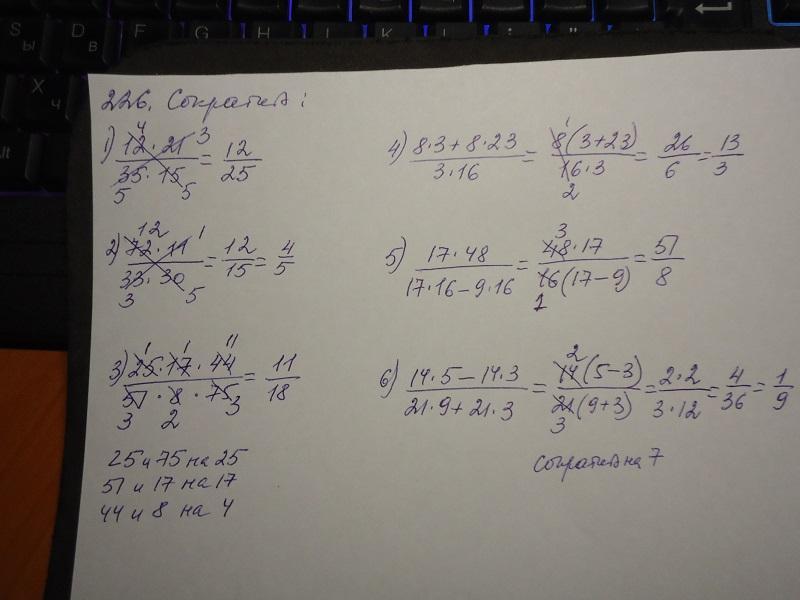 226. Сократить:
1) (12·21)/(35·15) = 12/25
4 3
5 5
2) (72·11)/(33·30) = 12/15 = 4/5
12 1
3 5
3) (25·17·44)/(51·8·75) = 11/18
1 1 11
3 2 3
25 и 75 на 25
51 и 17 на 17
44 и 8 на 4
4) (8·3+8·23)/(3·16) = 8(3+23)/(16·3) = 26/6 = 13/3
1
2
5) (17·48)/(17·16-9·16) = (48·17)/(16(17-9)) = 51/8
3
1
6) (14·5-14·3)/(21·9+21·3) = 14(5-3)/(21(9+3)) = (2·2)/(3·12) = 4/36 = 1/9
2
3
сократить на 7
S Ы
D В
F
G
H
K
L
X Ч
Alt